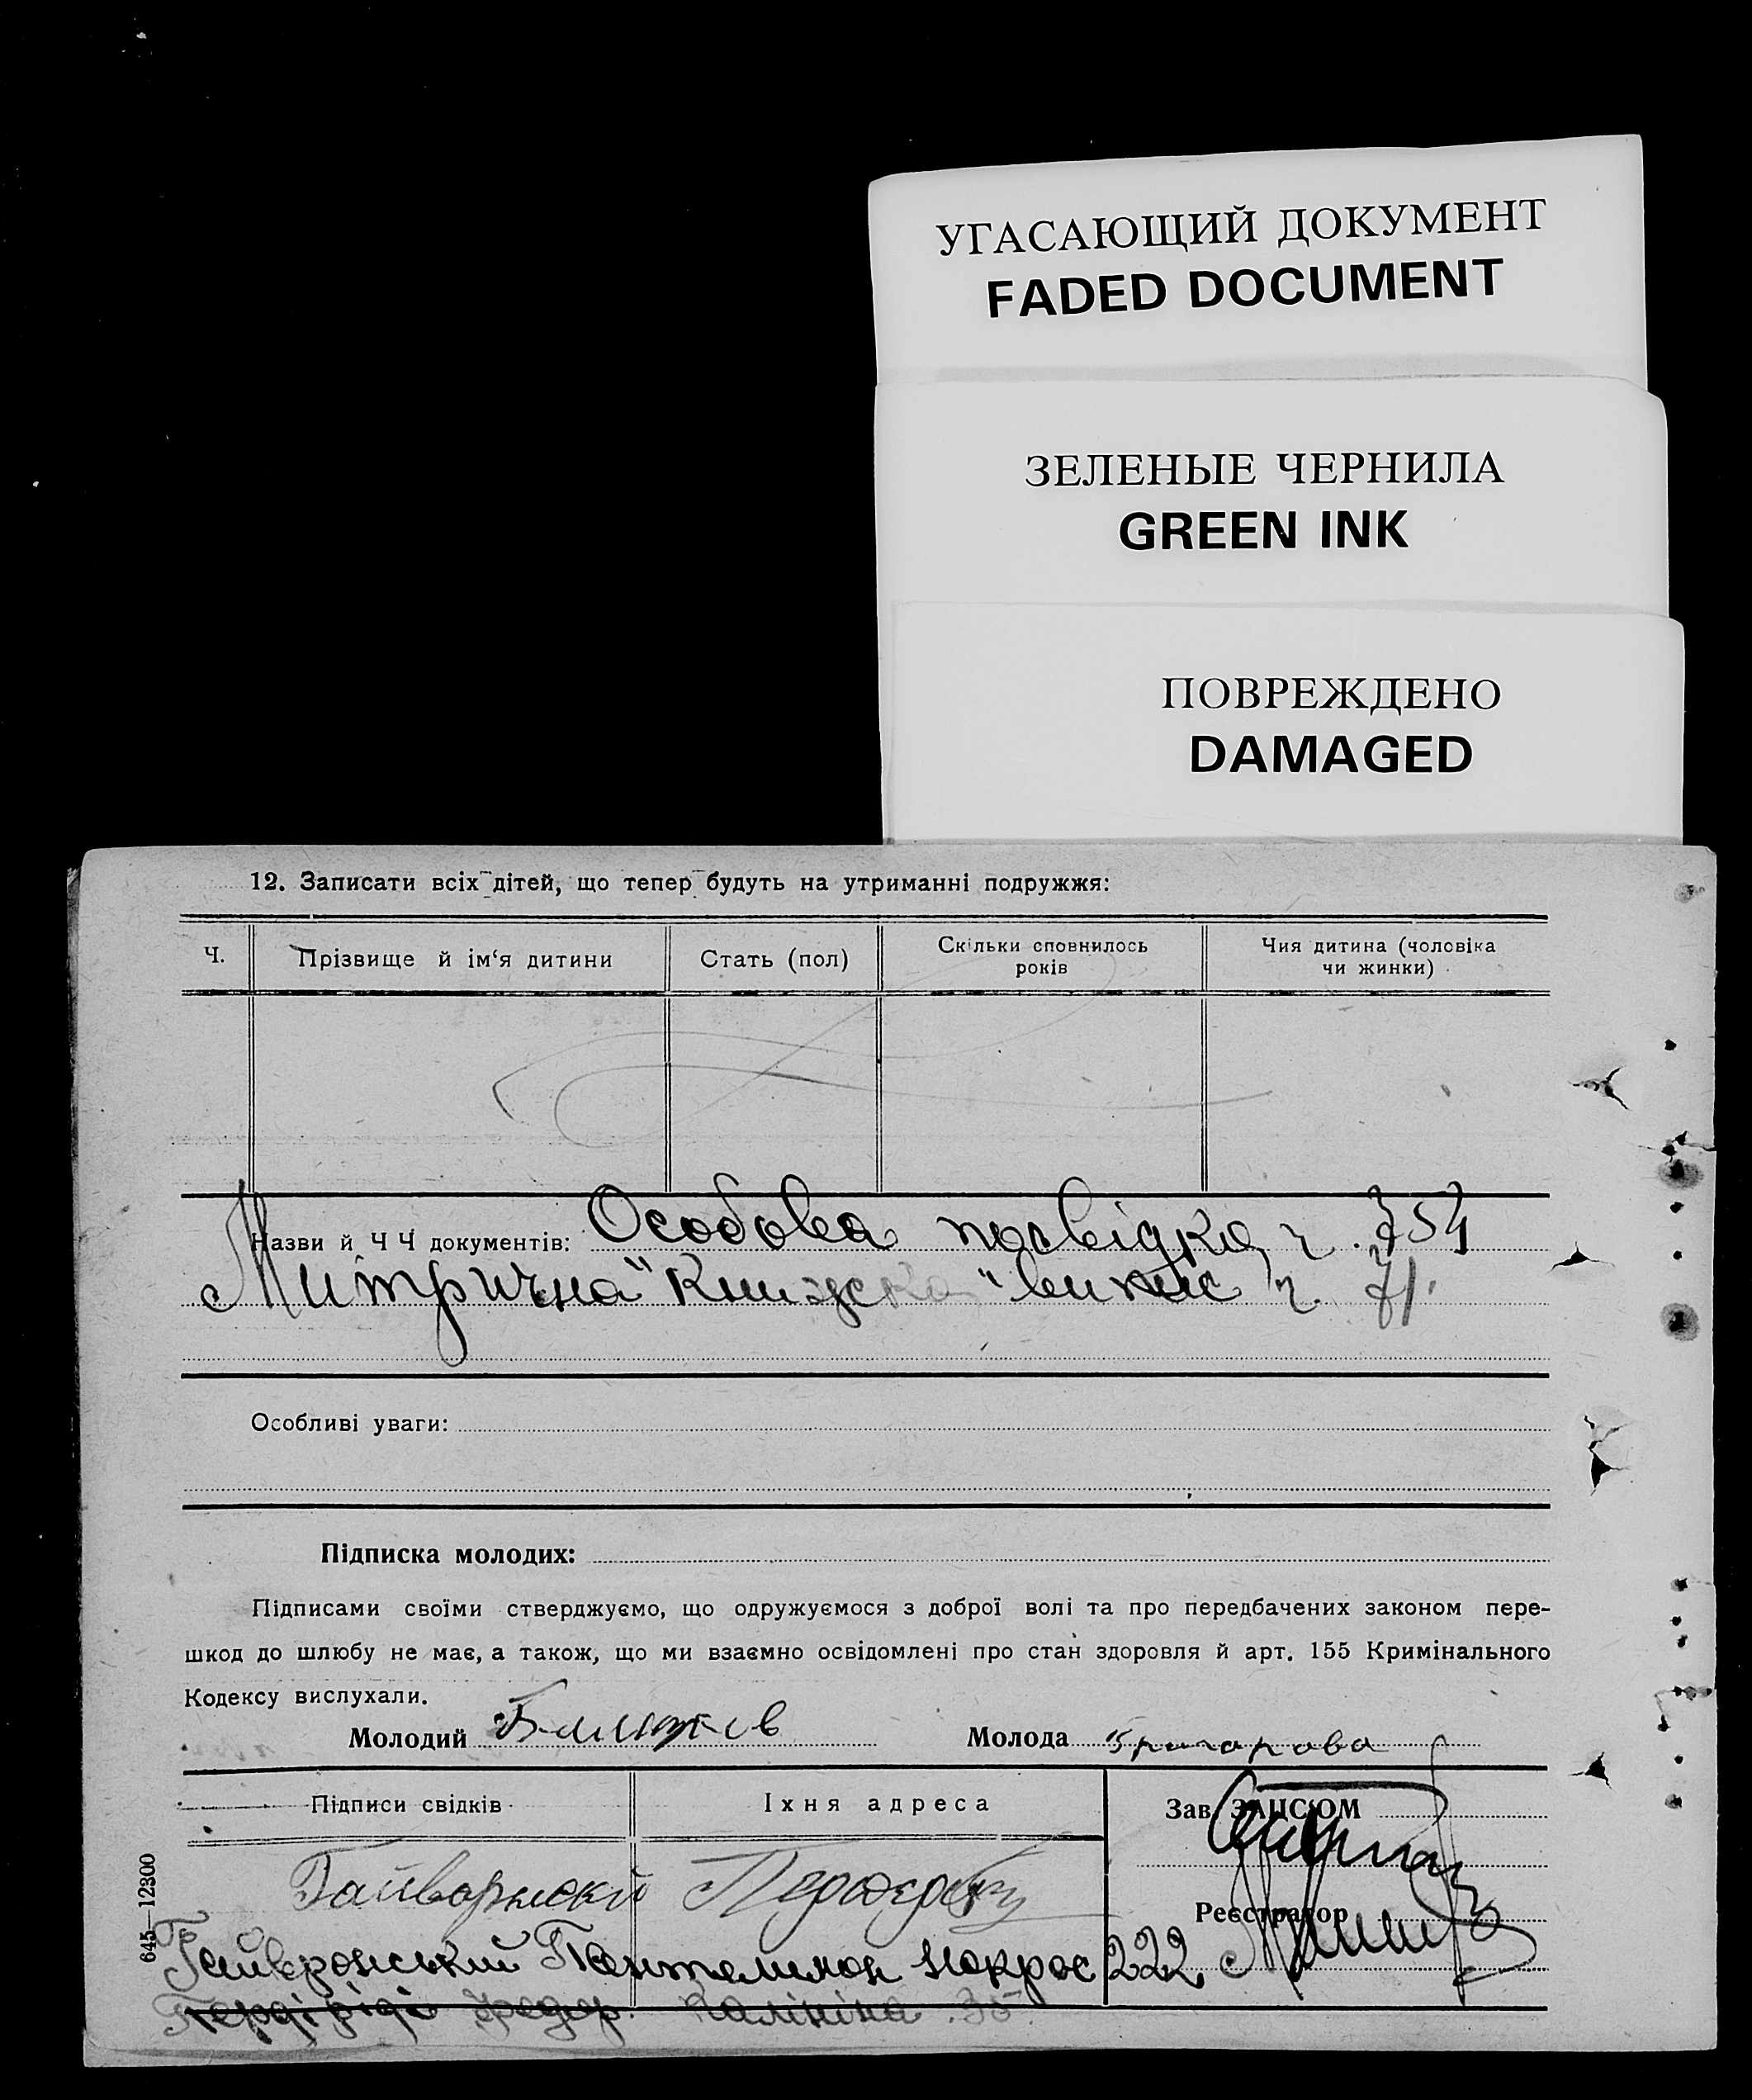 УГАСАЮЩИЙ ДОКУМЕНТ
FADED DOCUMENT
ЗЕЛЕНЫЕ ЧЕРНИЛА
GREEN INK
ПОВРЕЖДЕНО
DAMAGED
12. Записати всіх дітей, що тепер будуть на утриманні подружжя:
Ч.
Прізвище й ім‘я дитини
Стать (пол)
Скільки сповнилось
років
Чия дитина (чоловіка
чи жинки)
Назви й Ч Ч документів: Особова посвідка ч. 754
Митрична "Книжка" випис ч. 71.
Особливі уваги:
Підписка молодих:
Підписами своїми стверджуємо, що одружуємося з доброї волі та про передбачених законом пере-
шкод до шлюбу не має, а також, що ми взаємно освідомлені про стан здоровля й арт. 155 Кримінального
Кодексу вислухали.
Молодий
Молода
Підписи свідків
Їхня адреса
Зав. ЗАПС‘ОМ
Реєстратор
Гайворонський Пантелимон Некрас 222
Федор. Калініна 35
645—12300